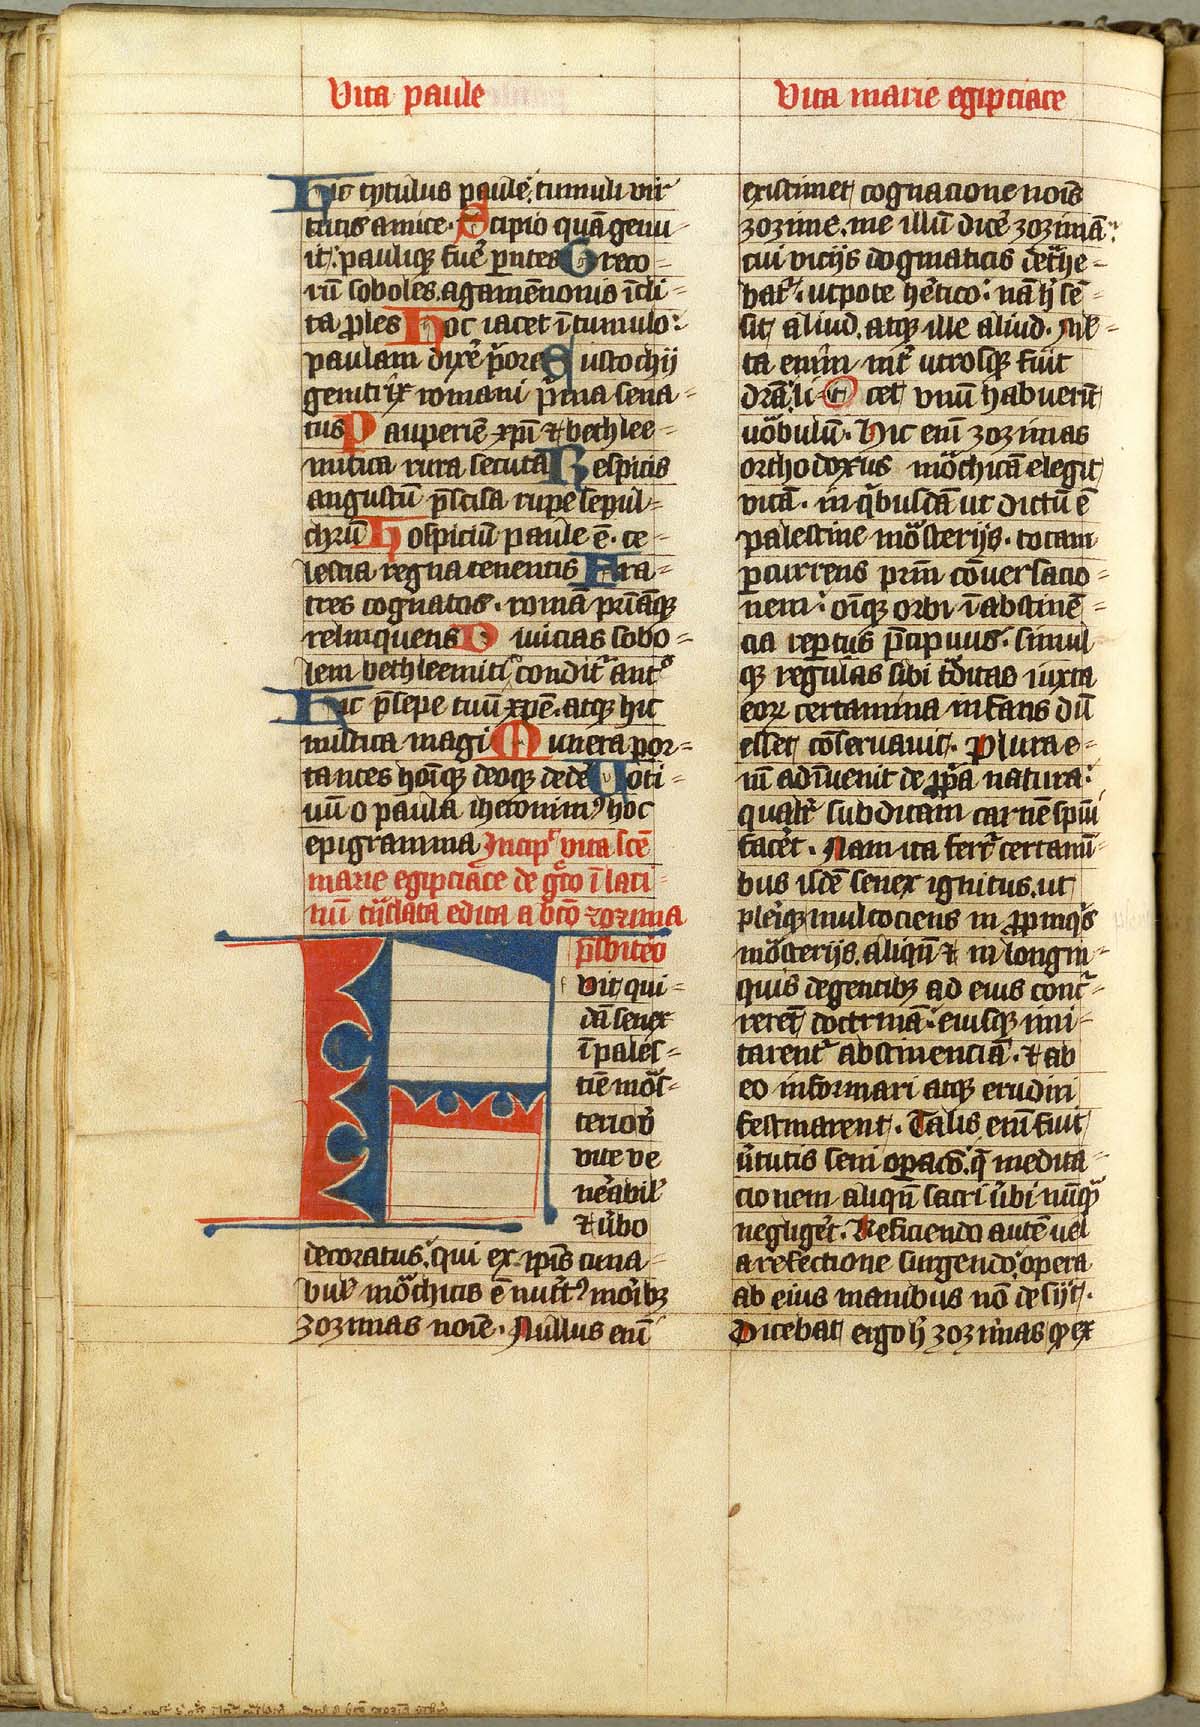 Vita paule
Vita marie egipciace
Hic tytulus paule. tumuli vir
tutis amice. Scipio quā genu
it: pauliq; fuē pēntes Greco-
rū soboles. agamēnonis īcli-
ta ples Hoc iacet ī tumulo:
paulam dixē p̄ores Eustochij
genitrix romani p̄ma sena-
tus Pauperiē xp̄i ⁊ bethlee-
mitica rura secuta Respicis
angustū p̄scisa rupe sepul-
chrū Hospiciū paule ē. ce-
lestia regna tenentis Fra-
tres cognatos. romā priāq;
relinquens Diuicias sobo-
lem bethleemiti condit ant
Hic p̄sepe tuū xp̄e. atq; hic
mistica magi Munera por-
tantes hoīq; deoq; dedē Uoti-
uū o paula iheronimꝰ hoc
epigramma Incip̄ vita scē
marie egipciace de gͦco ī lati-
nū tn̄slata edita a bto zozima
p̄sbitero
Fuit qui-
dā senex
ī pales-
tiē mōs-
terioꝝ
vite ve
nerabil
⁊ ūbo
decoratus. qui ex ipis cuna-
bul mōchicis ē nutͥtꝰ morib;
zozimas noīe. Nullus enī
existimet cognacione nois
zozime. me illū dicē zozimā:
cui vicijs dogmaticis detͣhe-
batr. utpote hētico: nā h̄ sē-
sit aliud. atq; ille aliud. Ml-
ta enim intͥ utrosq; fuit
drāͥ. liꝫ Licet vnū habuerīt
uōbulū. Hic enī zozimas
orthodoxus mōchicā elegit
vitā. in qͥbusdā ut dictū ē
palestine mōsterijs. totam
ꝑcurrens prim cōuersacio-
nem: oīq; orbi ī abstinē-
cia reptus p̄cipuus. simul
q; regulas sibi tͣditas iuxta
eoꝝ certamina infans dū
esset cōseruauit. Plura e-
nī adīuenit de ꝓpͥa natura:
qualr subditam carnē spiū
facēt. Nam ita ferr certami-
bus isdē senex ignitus. ut
pleīq; multociens in ꝓpinqͥs
mōsterijs. aliqn̄ ⁊ in longin-
quis degentib; ad eius concͥ-
rerēt doctrinā. eiusq; imi-
tarent abstinenciā. ⁊ ab
eo informari atq; erudiri
festinarent. Talis enī fuit
ūtutis seni opaco. qͥ medita-
cionem aliqn̄ sacri ūbi nūqͣ
negligēt. Reficiendo autē vel
a refectione surgendo: opera
ab eius manibus nō desijt.
Dicebat ergo h̄ zozimas qꝫ ex